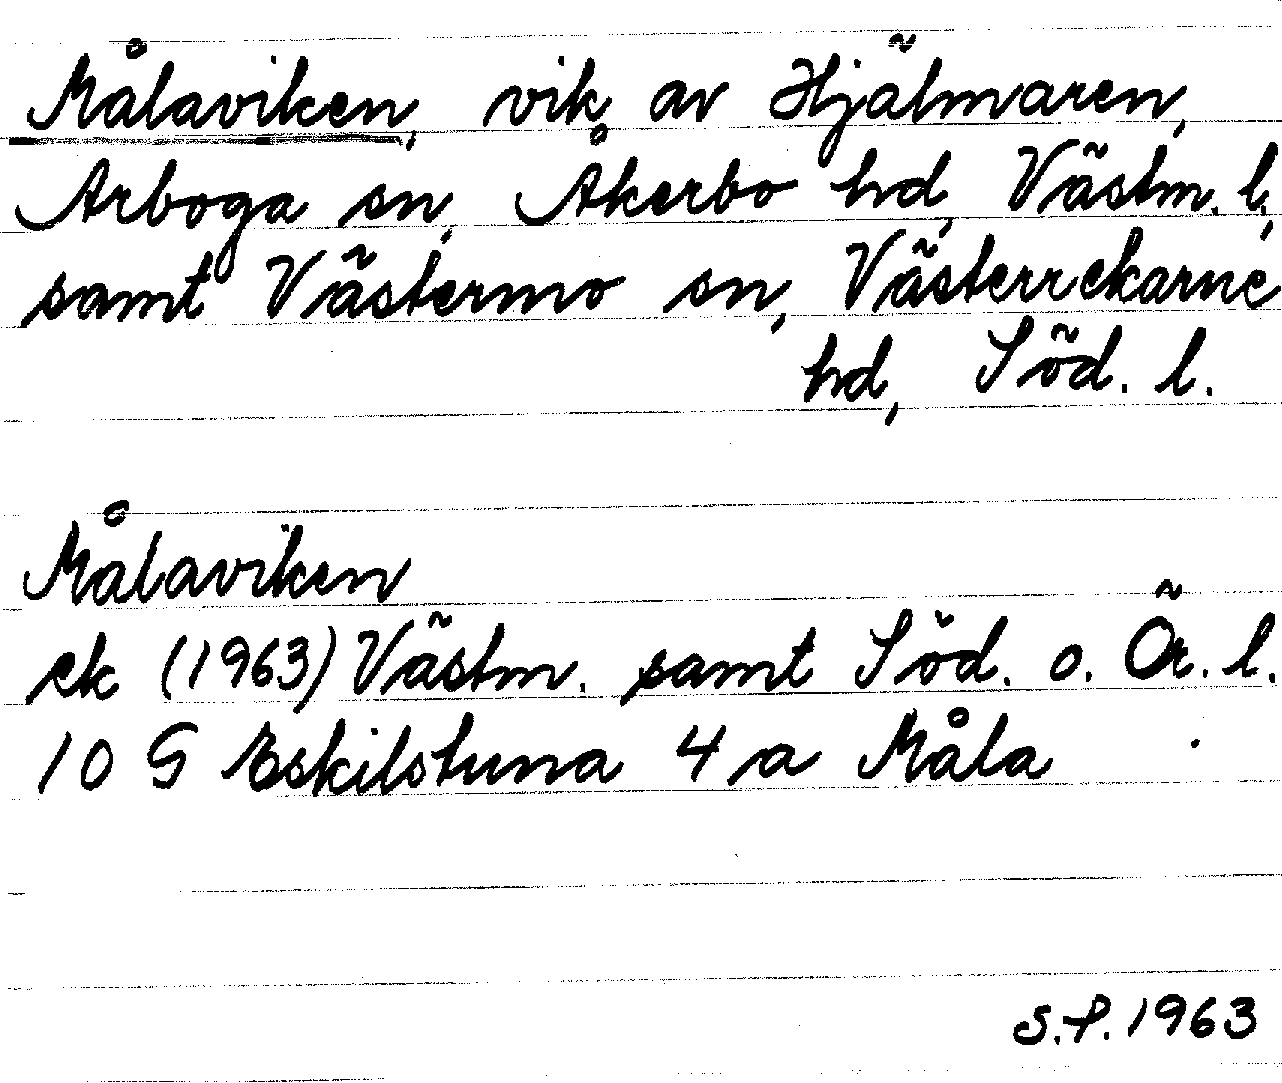 Målaviken, vik av Hjälmaren,
Arboga sn, Åkerbo hd, Västm. l.,
samt Västermo sn, Västerrekarne
hd, Söd. l.
Målaviken
ek (1963) Västm. samt Söd. o. Ör. l.
10 G Eskilstuna 4 a Måla
S.P. 1963